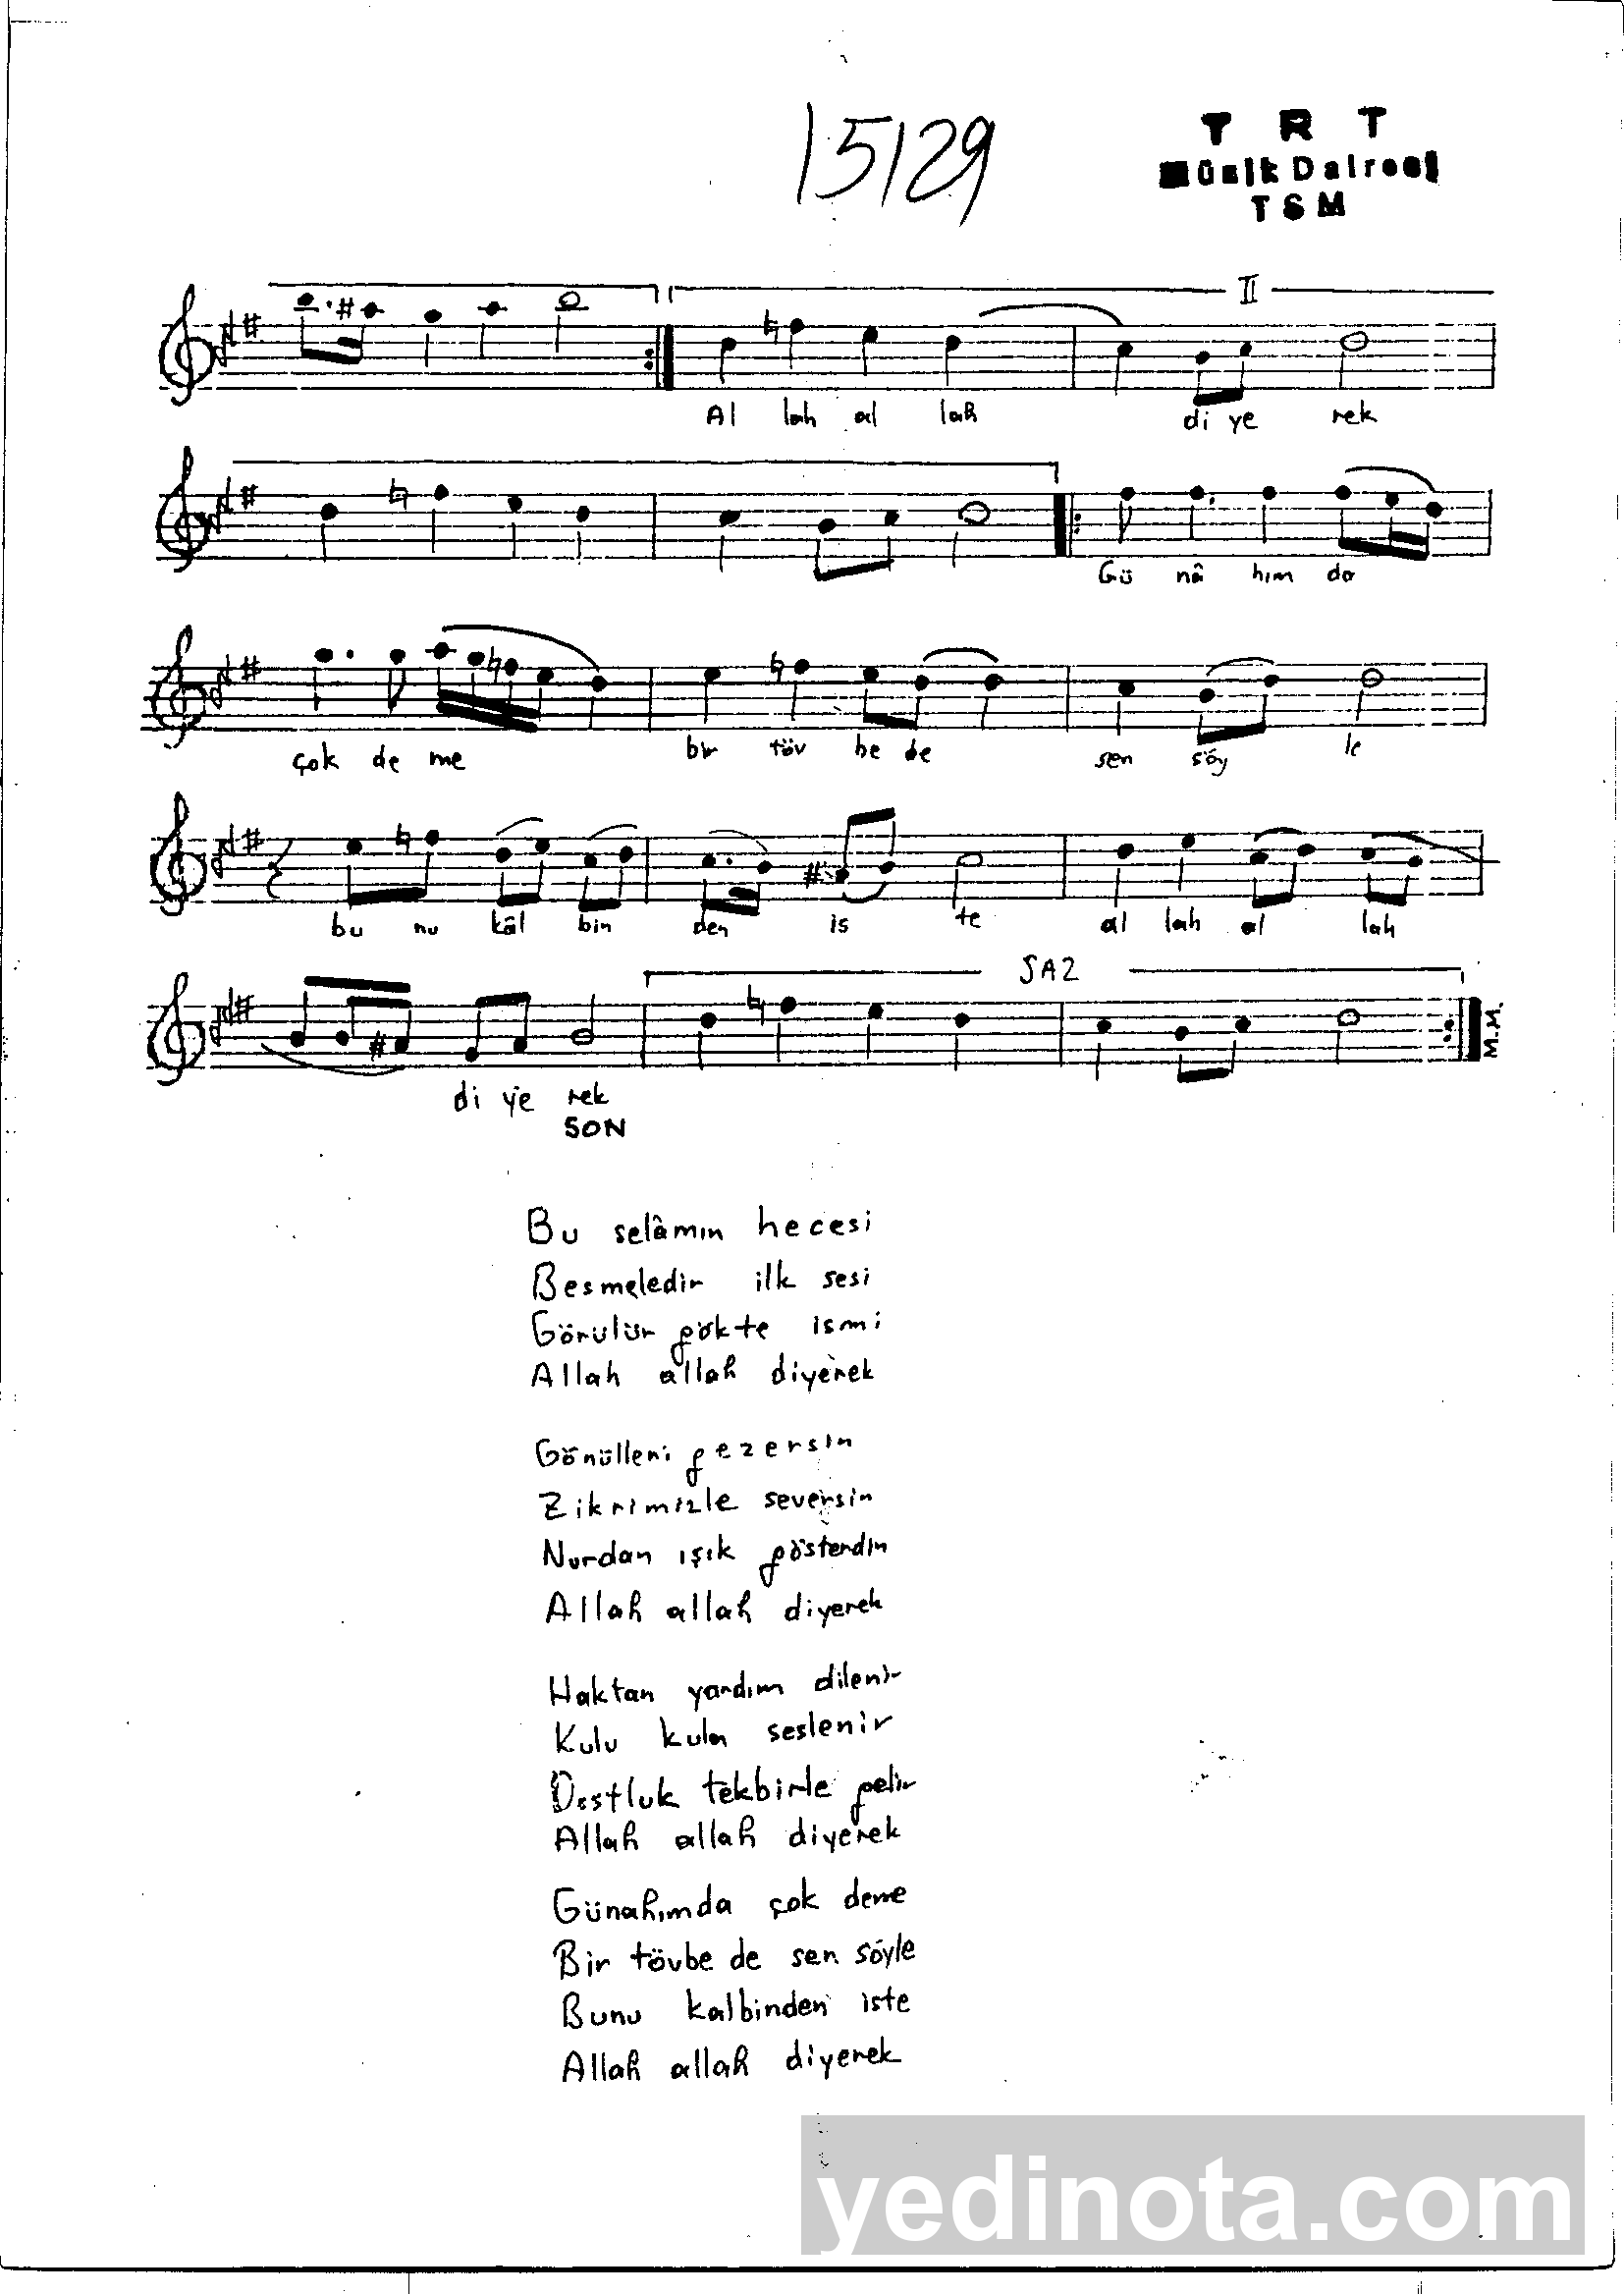 15129
T R T
Müzik Dairesi
TSM
II
Al lah al lah di ye rek
Gü nâ hım da
çok de me bir töv be de sen söy le
bu nu kâl bin den is te al lah al lah
SAZ
M.M.
di ye rek
SON
Bu selâmın hecesi
Besmeledir ilk sesi
Görülür gökte ismi
Allah allah diyerek
Gönülleri gezersin
Zikrimizle seversin
Nurdan ışık gösterdin
Allah allah diyerek
Haktan yardım dilenir
Kulu kula seslenir
Dostluk tekbirle gelir
Allah allah diyerek
Günahımda çok deme
Bir tövbe de sen söyle
Bunu kalbinden iste
Allah allah diyerek
yedinota.com